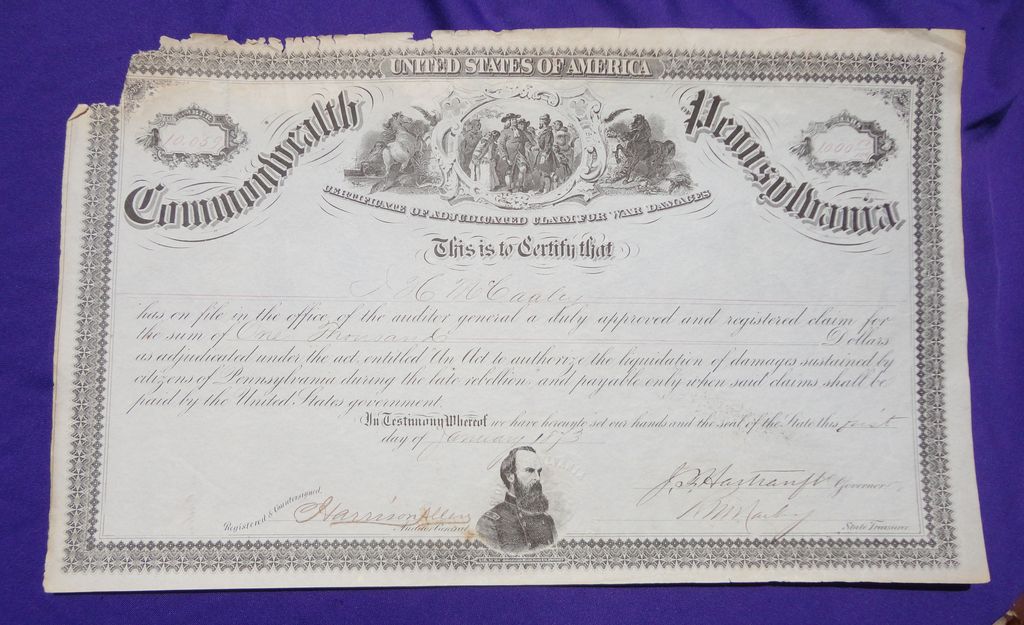 UNITED STATES OF AMERICA
Commonwealth Pennsylvania
10,059
1000
CERTIFICATE OF ADJUDICATED CLAIM FOR WAR DAMAGES
This is to Certify that
H McCauley
has on file in the office of the auditor general a duly approved and registered claim for
the sum of One Thousand Dollars
as adjudicated under the act, entitled "An Act to authorize the liquidation of damages sustained by
citizens of Pennsylvania during the late rebellion and payable only when said claims shall be
paid by the United States government.
In Testimony Whereof we have hereunto set our hands and the seal of the State this first
day of January 1873
J. F. Hartranft Governor
Registered & Countersigned
Harrison Allen
Auditor General
State Treasurer